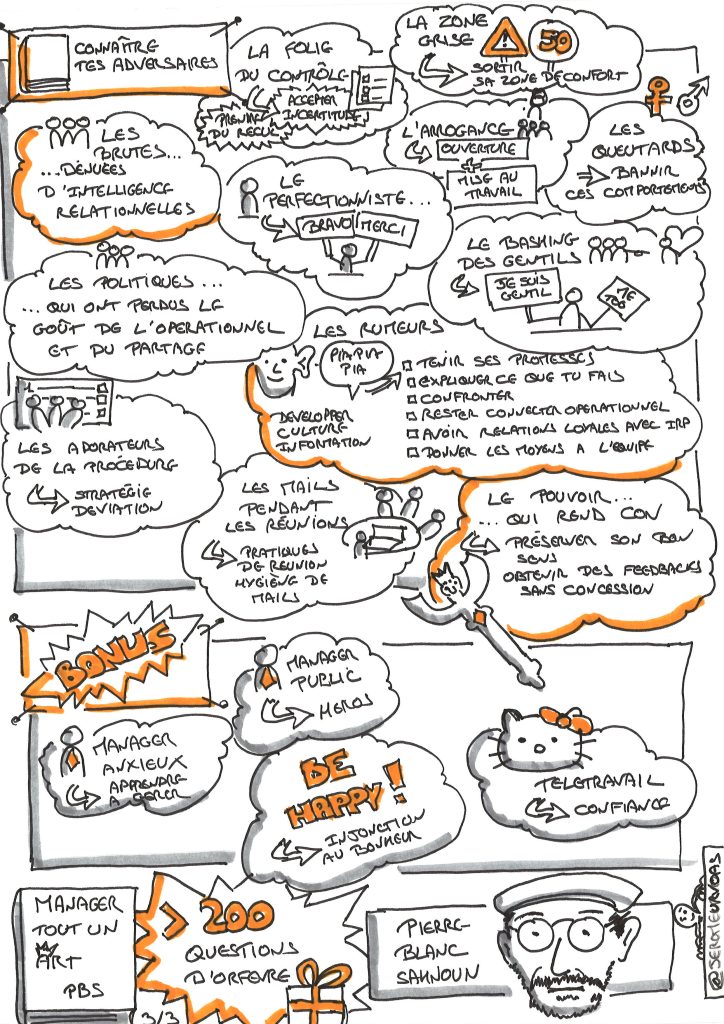 CONNAÎTRE
TES ADVERSAIRES
LA FOLIE
DU CONTRÔLE
PRENDRE
DU RECUL
ACCEPTER
INCERTITUDE
LA ZONE
GRISE
50
SORTIR
SA ZONE DE CONFORT
LES
BRUTES...
...DÉNUÉES
D'INTELLIGENCE
RELATIONNELLES
L'ARROGANCE
OUVERTURE
+
MISE AU
TRAVAIL
LES
QUEUTARDS
BANNIR
CES COMPORTEMENTS
LE
PERFECTIONNISTE...
BRAVO MERCI
LE BASHING
DES GENTILS
JE SUIS
GENTIL
ME
TOO
LES POLITIQUES...
...QUI ONT PERDUS LE
GOÛT DE L'OPERATIONNEL
ET DU PARTAGE
LES RUMEURS
PIA PIA
PIA
DEVELOPPER
CULTURE
INFORMATION
TENIR SES PROMESSES
EXPLIQUER CE QUE TU FAIS
CONFRONTER
RESTER CONNECTER OPERATIONNEL
AVOIR RELATIONS LOYALES AVEC IRP
DONNER LES MOYENS A L'EQUIPE
LES ADORATEURS
DE LA PROCÉDURE
STRATÉGIE
DEVIATION
LES MAILS
PENDANT
LES RÉUNIONS
PRATIQUES
DE REUNION
HYGIENE DE
MAILS
LE POUVOIR...
...QUI REND CON
PRÉSERVER SON BON
SENS
OBTENIR DES FEEDBACKS
SANS CONCESSION
BONUS
MANAGER
PUBLIC
HEROS
MANAGER
ANXIEUX
APPRENDRE
A GERER
BE
HAPPY!
INJONCTION
AU BONHEUR
TELETRAVAIL
CONFIANCE
MANAGER
TOUT UN
ART
PBS
> 200
QUESTIONS
D'ORFEVRE
3/3
PIERRE-
BLANC
SAHNOUN